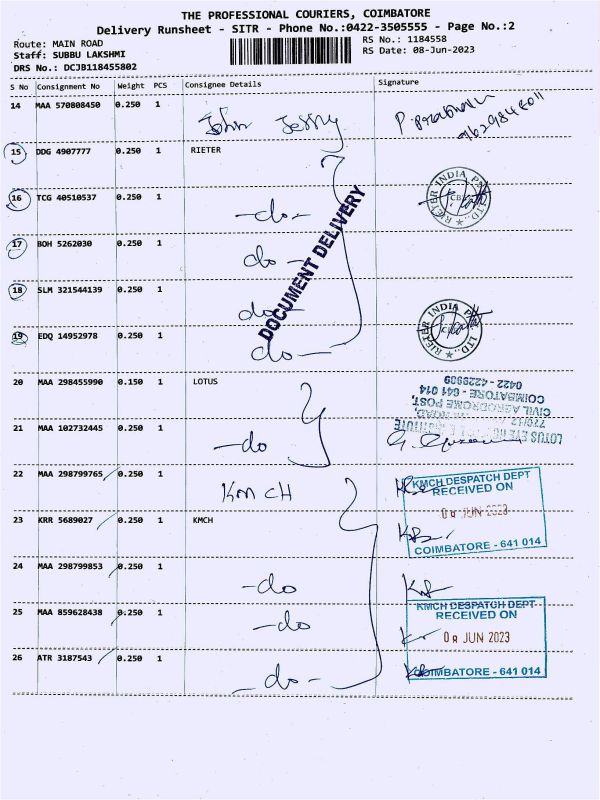 THE PROFESSIONAL COURIERS, COIMBATORE
Delivery Runsheet - SITR - Phone No.:0422-3505555 - Page No.:2
Route: MAIN ROAD
RS No.: 1184558
Staff: SUBBU LAKSHMI
RS Date: 08-Jun-2023
DRS No.: DCJB118455802
S No Consignment No Weight PCS Consignee Details Signature
14 MAA 570808450 0.250 1 John Jessy
15 DDG 4907777 0.250 1 RIETER
16 TCG 40510537 0.250 1 -do-
RIETER INDIA PVT. LTD.,
17 BOH 5262030 0.250 1 do -
DOCUMENT DELIVERY
18 SLM 321544139 0.250 1 do -
19 EDQ 14952978 0.250 1 do -
RIETER INDIA PVT. LTD.,
20 MAA 298455990 0.150 1 LOTUS
0422 - 4229909
COIMBATORE - 641 014
CIVIL AERODROME POST,
LOTUS EYE
21 MAA 102732445 0.250 1 -do
22 MAA 298799765 0.250 1 KMCH
KMCH DESPATCH DEPT
RECEIVED ON
08 JUN 2023
COIMBATORE - 641 014
23 KRR 5689027 0.250 1 KMCH
24 MAA 298799853 0.250 1 -do
25 MAA 859628438 0.250 1 -do
KMCH DESPATCH DEPT
RECEIVED ON
08 JUN 2023
COIMBATORE - 641 014
26 ATR 3187543 0.250 1 -do-